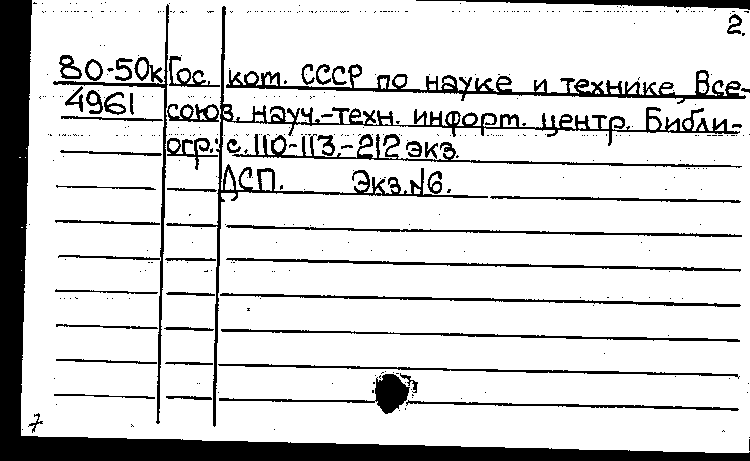 2.
80-50к Гос. ком. СССР по науке и технике, Все-
4961 союз. науч.-техн. информ. центр. Библи-
огр.: с. 110-113.-212 экз.
ДСП. Экз.№6.
7